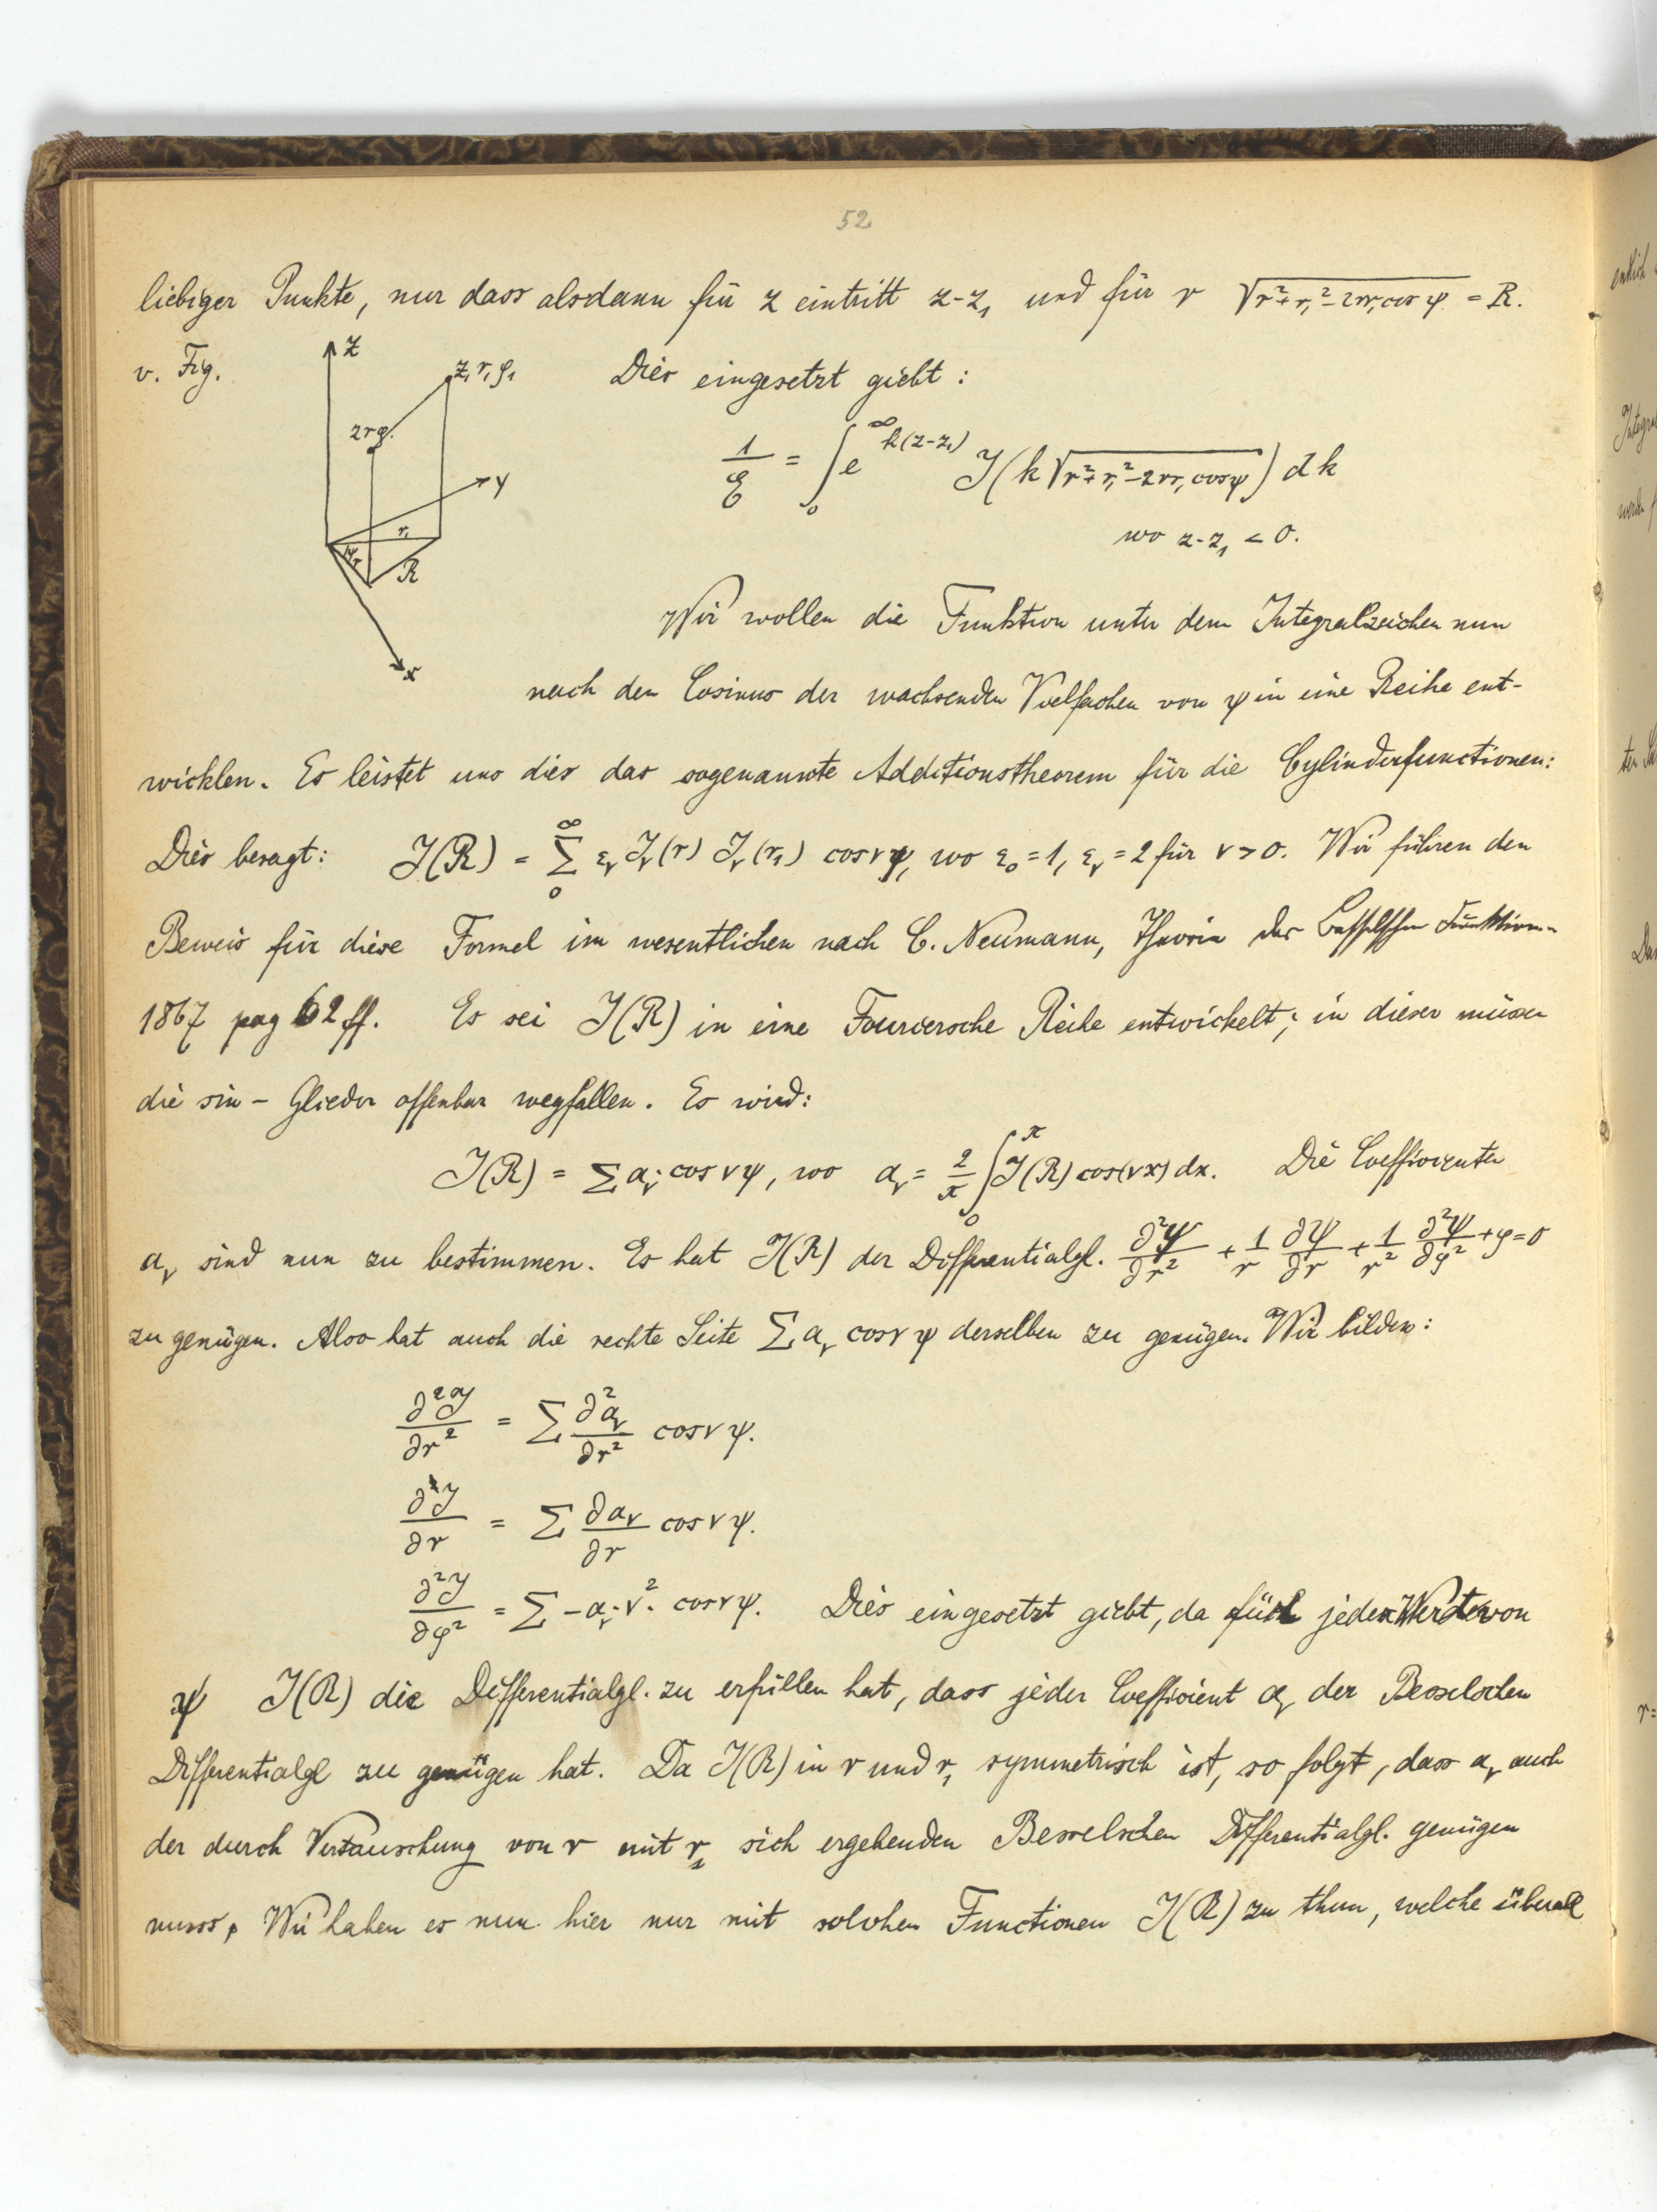 52
liebiger Punkte, nur dass alsdann für z eintritt z-z₁ und für r √(r²+r₁²-2rr₁cos ψ) = R.
v. Fig.
Z
z₁ r₁ φ₁
z r φ.
Y
r₁
ψ
r
R
x
Dies eingesetzt giebt:
1/E = ∫₀^∞ e^{k(z-z₁)} J(k√(r²+r₁²-2rr₁cosψ)) dk
wo z-z₁ < 0.
Wir wollen die Funktion unter dem Integralzeichen nun
nach den Cosinus der wachsenden Vielfachen von ψ in eine Reihe ent-
wicklen. Es leistet uns dies das sogenannte Additionstheorem für die Cylinderfunctionen:
Dies besagt: J(R) = Σ₀^∞ εᵥ Jᵥ(r) Jᵥ(r₁) cos νψ, wo ε₀=1, εᵥ=2 für ν>0. Wir führen den
Beweis für diese Formel im wesentlichen nach C. Neumann, Theorie der Besselschen Funktionen
1867 pag 62 ff. Es sei J(R) in eine Fouriersche Reihe entwickelt; in dieser müssen
die sin - Glieder offenbar wegfallen. Es wird:
J(R) = Σ aᵥ·cos νψ, wo aᵥ = 2/π ∫₀^π J(R) cos(νx) dx. Die Coefficienten
aᵥ sind nun zu bestimmen. Es hat J(R) der Differentialgl. ∂²ψ/∂r² + 1/r ∂ψ/∂r + 1/r² ∂²ψ/∂φ² + φ = 0
zu genügen. Also hat auch die rechte Seite Σ aᵥ cos ν ψ derselben zu genügen. Wir bilden:
∂²J/∂r² = Σ ∂²aᵥ/∂r² cos ν ψ.
∂J/∂r = Σ ∂aᵥ/∂r cos ν ψ.
∂²J/∂φ² = Σ - aᵥ·ν²· cos ν ψ. Dies eingesetzt giebt, da für jeden Wert von
ψ J(R) die Differentialgl. zu erfüllen hat, dass jeder Coefficient aᵥ der Besselschen
Differentialgl zu genügen hat. Da J(R) in r und r₁ symmetrisch ist, so folgt, dass aᵥ auch
der durch Vertauschung von r mit r₁ sich ergebenden Besselschen Differentialgl. genügen
muss. Wir haben es nun hier nur mit solchen Functionen J(R) zu thun, welche überall